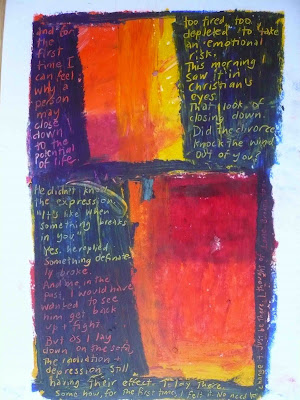 and for
the
first
time I
can feel
why a
person
may
close
down
to the
potential
of life
too tired, too
depleted to take
an emotional
risk.
This morning I
saw it in
Christian's
eyes.
That look of
closing down.
Did the divorce
knock the wind
out of you?
He didn't know
the expression.
"It's like when
something breaks
in you"
Yes. he replied
Something definate
ly broke.
And me, in the
past, I would have
wanted to see
him get back
up & fight
But as I lay
down on the sofa,
The radiation &
depression still
having their effect. To lay there
Some how, for the first time, I felt it. No need to
change it. Just be there, I thought of